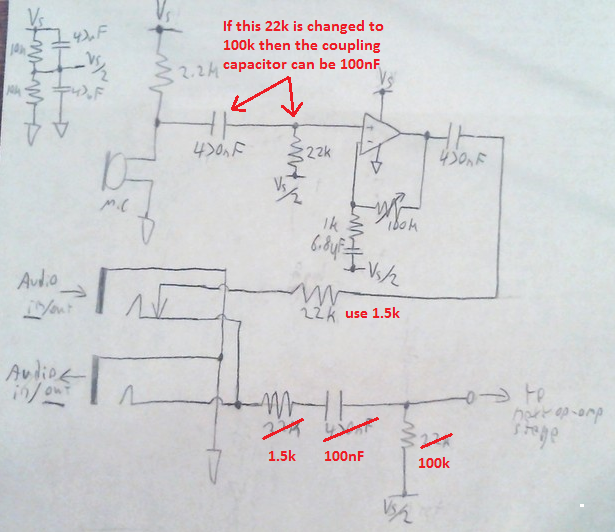 Vs
Vs
If this 22k is changed to
100k then the coupling
capacitor can be 100nF
10k
47uF
Vs/2
10k
47uF
2.2k
Vs
470nF
22k
Vs/2
+
-
470nF
Mic
100k
1k
6.8µF
Vs/2
Audio
in/out
22k
use 1.5k
Audio
in/out
22k
1.5k
470nF
100nF
22k
100k
to
next op-amp
stage
Vs/2